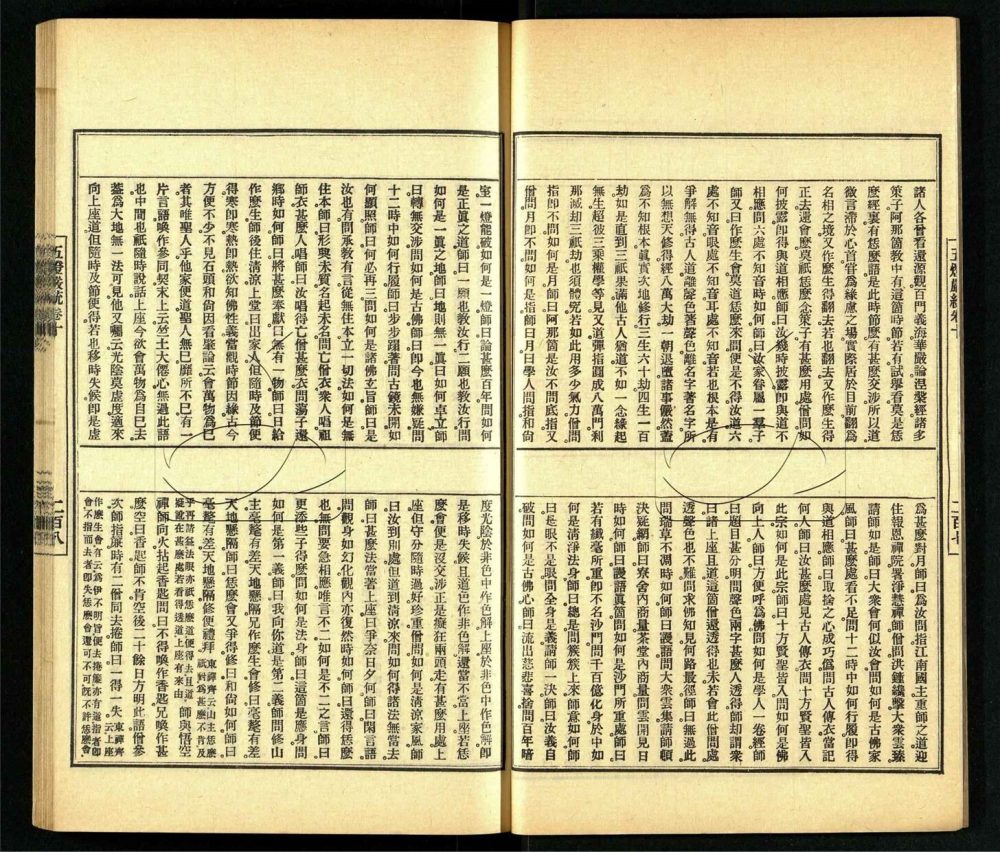 五燈嚴統卷十
諸人各曾看還源觀百門義海華嚴論涅槃經諸多
策子阿那箇教中有這箇時節若有試舉看莫是恁
麼經裏有恁麼語是此時節麼有甚麼交涉所以道
微言滯於心首嘗為緣慮之場實際居於目前翻為
名相之境又作麼生得翻去若也翻去又作麼生得
正去還會麼莫祇恁麼念策子有甚麼用處僧問如
何披露即得與道相應師曰汝幾時披露即與道不
相應問六處不知音時如何師曰汝家眷屬一羣子
師又曰作麼生會莫道恁麼來問便是不得汝道六
處不知音眼處不知音耳處不知音若也根本是有
爭解無得古人道離聲色著聲色離名字著名字所
以無想天修得經八萬大劫一朝退墮諸事儼然蓋
為不知根本真實次地修行三生六十劫四生一百
劫如是直到三祇果滿他古人猶道不如一念緣起
無生超彼三乘權學等見又道彈指圓成八萬門剎
那滅却三祇劫也須體究若如此用多少氣力僧問
指即不問如何是月師曰阿那箇是汝不問底指又
僧問月即不問如何是指師曰月曰學人問指和尚
為甚麼對月師曰為汝問指江南國主重師之道迎
住報恩禪院署淨慧禪師僧問洪鐘纔擊大衆雲臻
請師如是師曰大衆會何似汝會問如何是古佛家
風師曰甚麼處看不足問十二時中如何行履即得
與道相應師曰取捨之心成巧偽問古人傳衣當記
何人師曰汝甚麼處見古人傳衣問十方賢聖皆入
此宗如何是此宗師曰十方賢聖皆入問如何是佛
向上人師曰方便呼為佛問如何是學人一卷經師
曰題目甚分明問聲色兩字甚麼人透得師却謂衆
曰諸上座且道這箇僧還透得也未若會此僧問處
透聲色也不難問求佛知見何路最徑師曰無過此
問瑞草不凋時如何師曰謾語問大衆雲集請師頓
決疑網師曰寮舍內商量茶堂內商量問雲開見日
時如何師曰謾語真箇問如何是沙門所重處師曰
若有纖毫所重即不名沙門問千百億化身於中如
何是清淨法身師曰總是問簇簇上來師意如何師
曰是眼不是眼問全身是義請師一決師曰汝義自
破問如何是古佛心師曰流出慈悲喜捨問百年暗
室一燈能破如何是一燈師曰論甚麼百年問如何
是正真之道師曰一願也教汝行二願也教汝行問
如何是一真之地師曰地則無一真曰如何卓立師
曰轉無交涉問如何是古佛師曰即今也無嫌疑問
十二時中如何行履師曰步步蹋著問古鏡未開如
何顯照師曰何必再三問如何是諸佛玄旨師曰是
汝也有問承教有言從無住本立一切法如何是無
住本師曰形興未質名起未名問亡僧衣衆人唱祖
師衣甚麼人唱師曰汝唱得亡僧甚麼衣問蕩子還
鄉時如何師曰將甚麼奉獻曰無有一物師曰日給
作麼生師後住清涼上堂曰出家人但隨時及節便
得寒即寒熱即熱欲知佛性義當觀時節因緣古今
方便不少不見石頭和尚因看肇論云會萬物為己
者其唯聖人乎他家便道聖人無己靡所不己有一
片言語喚作參同契末上云竺土大僊心無過此語
也中間也祇隨時說話上座今欲會萬物為自己去
蓋為大地無一法可見他又囑云光陰莫虛度適來
向上座道但隨時及節便得若也移時失候即是虛
度光陰於非色中作色解上座於非色中作色解即
是移時失候且道色作非色解還當不當上座若恁
麼會便是沒交涉正是癡狂兩頭走有甚麼用處上
座但守分隨時過好珍重僧問如何是清涼家風師
曰汝到別處但道到清涼來問如何得諸法無當去
師曰甚麼法當著上座曰爭奈日夕何師曰閑言語
問觀身如幻化觀內亦復然時如何師曰還得恁麼
也無問要急相應唯言不二如何是不二之言師曰
更添些子得麼問如何是法身師曰這箇是應身問
如何是第一義師曰我向你道是第二義師問修山
主毫釐有差天地懸隔兄作麼生會修曰毫釐有差
天地懸隔師曰恁麼會又爭得修曰和尚如何師曰
毫釐有差天地懸隔修便禮拜
師與悟空
禪師向火拈起香匙問曰不得喚作香匙兄喚作甚
麼空曰香匙師不肯空後二十餘日方明此語僧參
次師指簾時有二僧同去捲師曰一得一失
五燈嚴統卷十
二百八